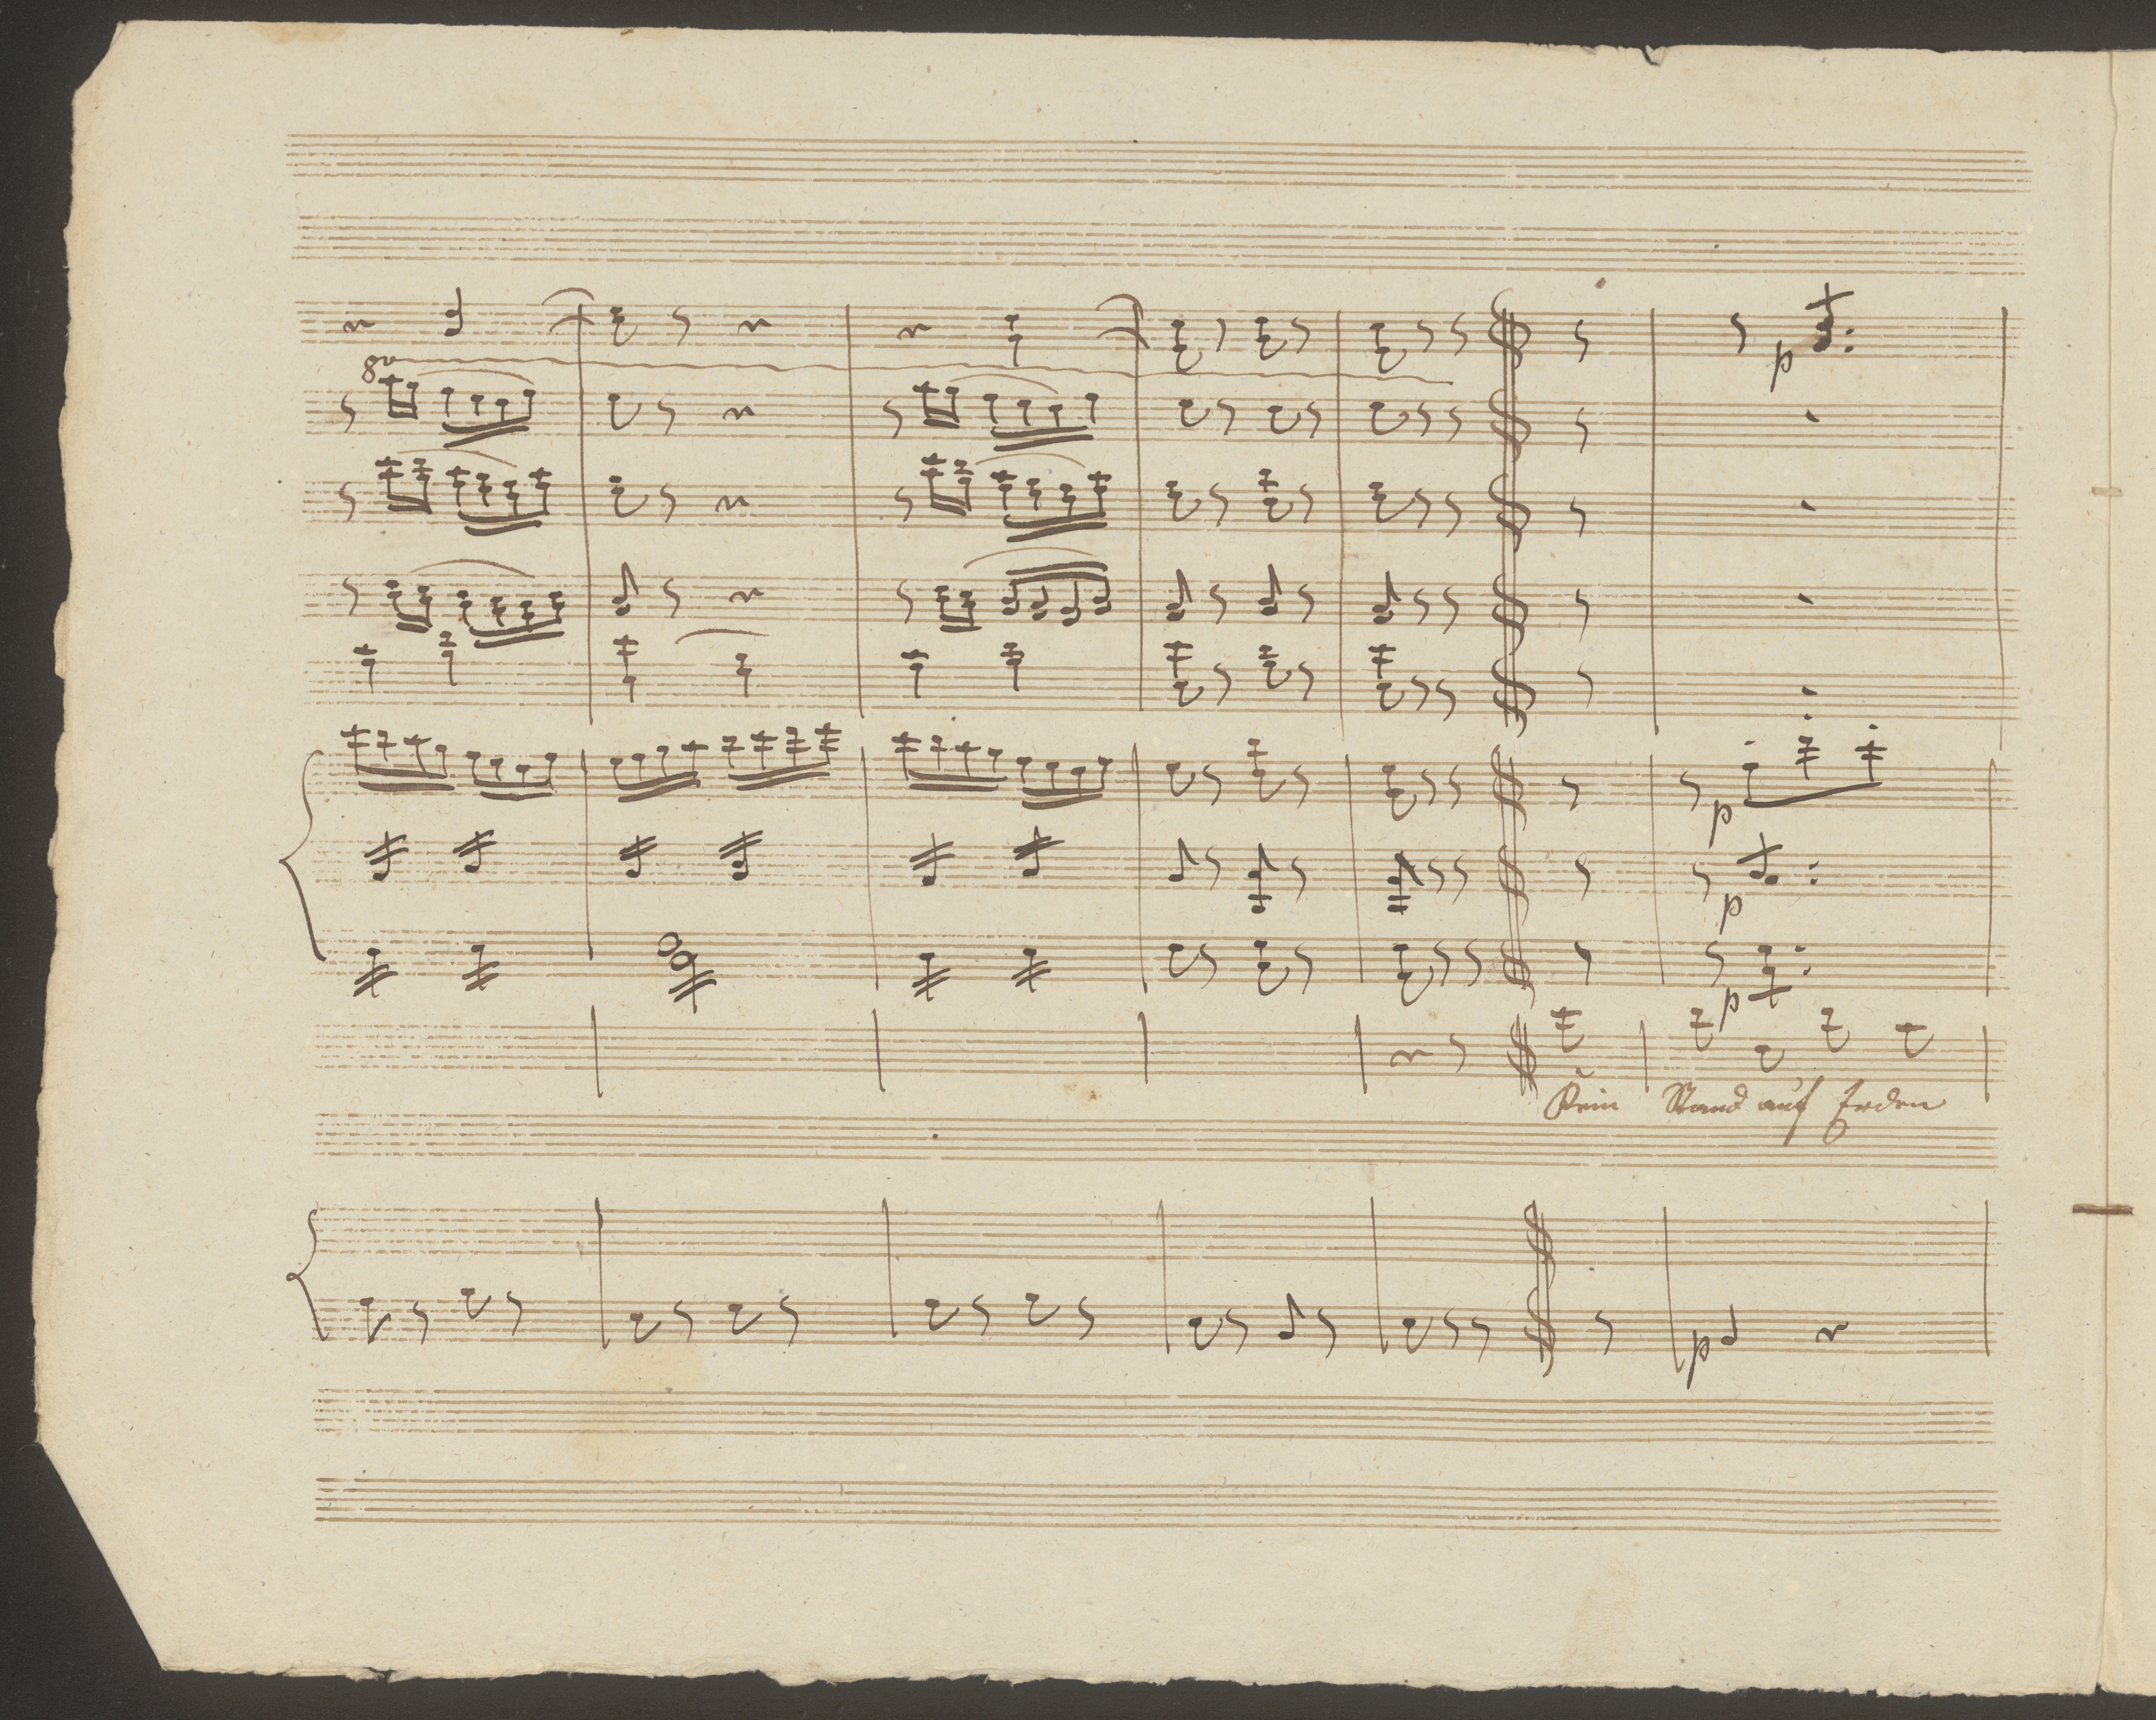 8va
p
p
p
p
Kein Stand auf Erden
p